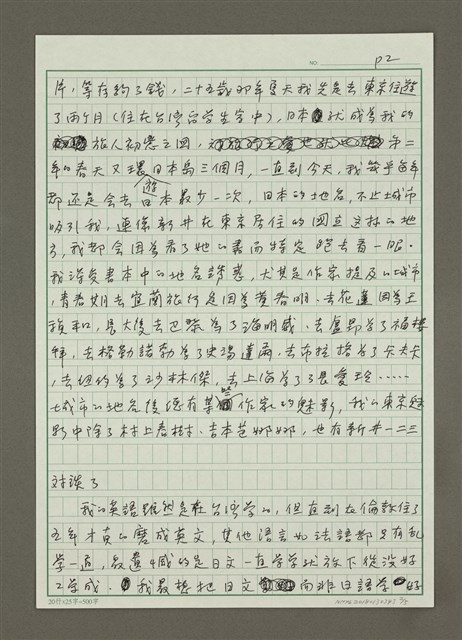 NO. P2
片,等存夠了錢,二十五歲那年夏天我先是去東京住遊
了兩个月(住在台灣留学生宇中),日本就成為我的
旅人初戀之國,第二
年的春天又環遊日本島三個月,一直到今天,我幾乎每年
都还是会去日本最少一次,日本的地名,不止城市
吸引我,連像新井在東京居住的國立这样的地
方,我都会因為看了她的書而特定跑去看一眼。
我深受書本中的地名誘惑,尤其是作家提及的城市
,青春期去宜蘭旅行是因為黃春明、去花蓮因為王
禎和,長大後去巴黎為了海明威、去盧昂為了福樓
拜,去格勒諾勃為了史湯達爾,去布拉格為了卡夫卡
,去紐約為了沙林傑,去上海為了張愛玲……
城市的地名後總有某些作家的魅影,我的東京魅
影中除了村上春樹、吉本芭娜娜,也有新井一二三
对談了
我的英語雖然是在台灣学的,但直到在倫敦住了
五年才真的磨成英文,其他語言如法語都只有乱
学一通,最遺憾的是日文一直学学就放下從沒好
好学成。我最想把日文而非日語学好
20行×25字=500字